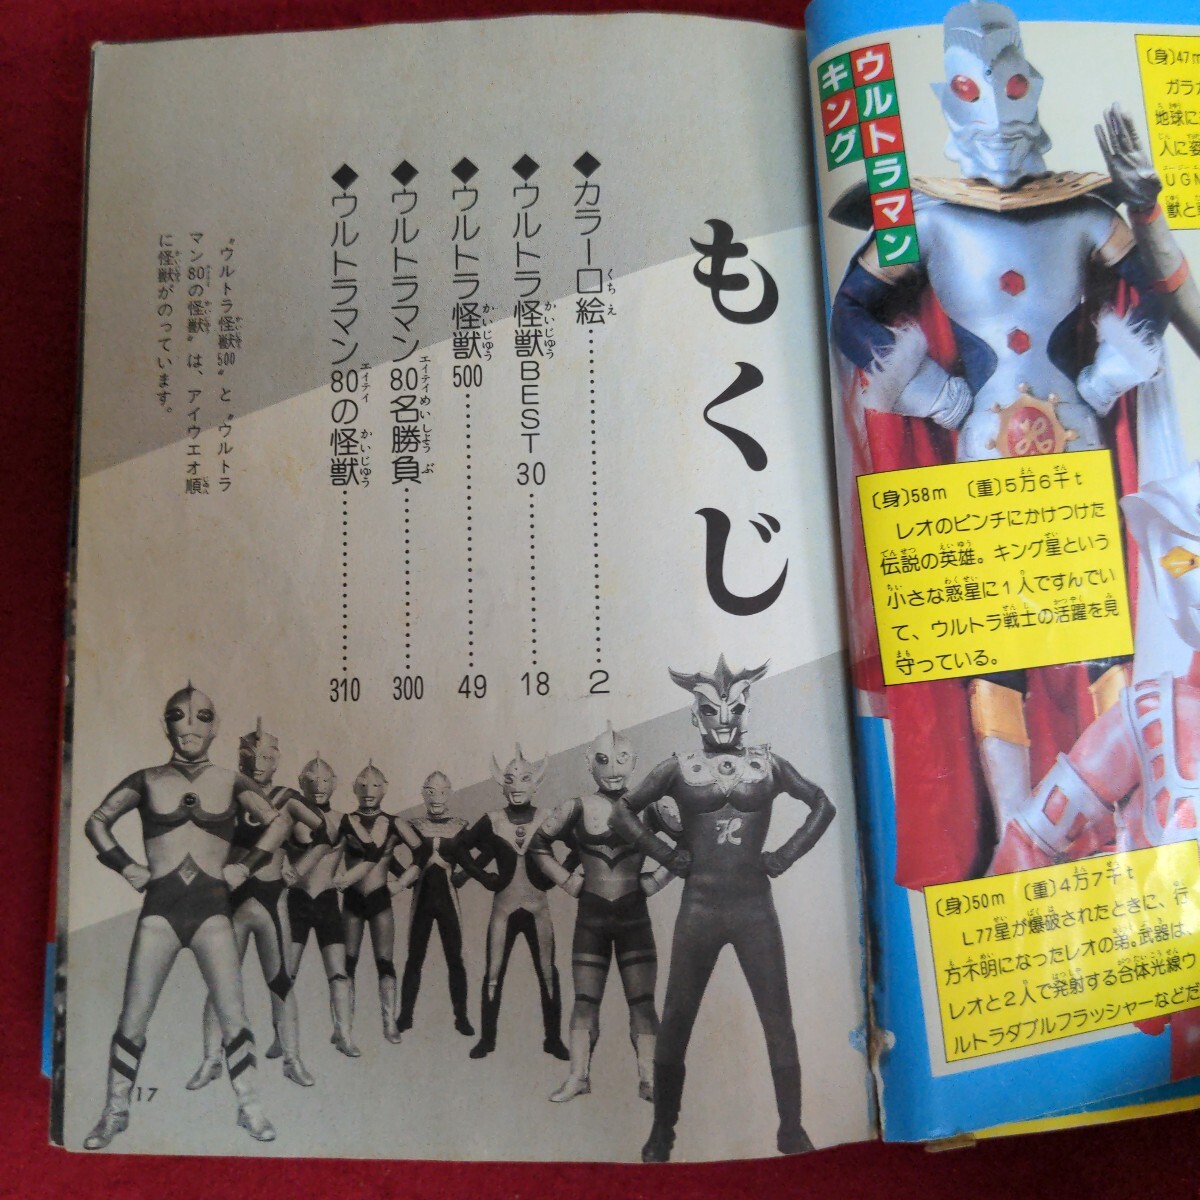 ウルトラマン
キング
〔身〕47m
ガラガ
地球に
人に姿
UGN
獣と
〔身〕58m 〔重〕5万6千t
レオのピンチにかけつけた
伝説の英雄。キング星という
小さな惑星に1人ですんでい
て、ウルトラ戦士の活躍を見
守っている。
〔身〕50m 〔重〕4万7千t
L77星が爆破されたときに、行
方不明になったレオの弟。武器は、
レオと2人で発射する合体光線ウ
ルトラダブルフラッシャーなどだ
もくじ
◆カラー口絵……………2
◆ウルトラ怪獣BEST30……………18
◆ウルトラ怪獣500……………49
◆ウルトラマン80名勝負……………300
◆ウルトラマン80の怪獣……………310
"ウルトラ怪獣500"と"ウルトラ
マン80の怪獣"は、アイウエオ順
に怪獣がのっています。
17